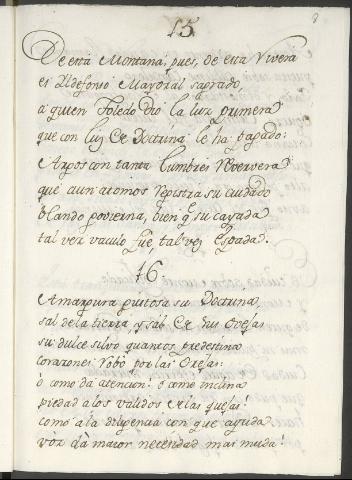 15.
De esta Montaña, pues, de esta Rivera
es Ildefonso Mayoral sagrado,
a quien Toledo dio la luz primera
que con luz de Doctrina le ha pagado:
Argos con tanta lumbre Rververa
que aun atomos registra su cuidado
blando govierna, bien q su cayada
tal vez vaculo fue, tal vez Espada.
16.
Amargura gustosa su Doctrina,
sal de la tierra, y sal de sus Ovejas
su dulce silvo quantos predestina
corazones robò por las Orejas:
ò como dà atencion! ò como inclina
piedad a los validos de las quejas!
como a la diligencia con que ayuda
voz dà maior necesidad mas muda!